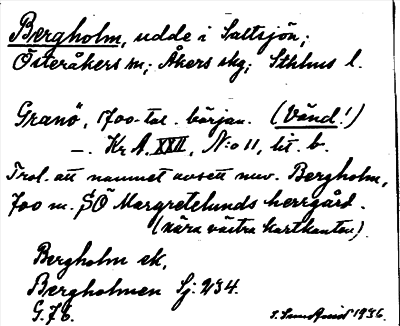 Bergholm, udde i Saltsjön;
Österåkers sn; Åkers skg; Sthlms l.
Granö, 1700-tal. början. (Vänd!)
—. Kr A. XXII, N:o 11, lit. b.
Trol. att namnet avsett nuv. Bergholm,
700 m. SÖ Margretelunds herrgård.
(nära västra kartkanten).
Bergholm ek,
Bergholmen Sj: 234.
G. 76.
1936.